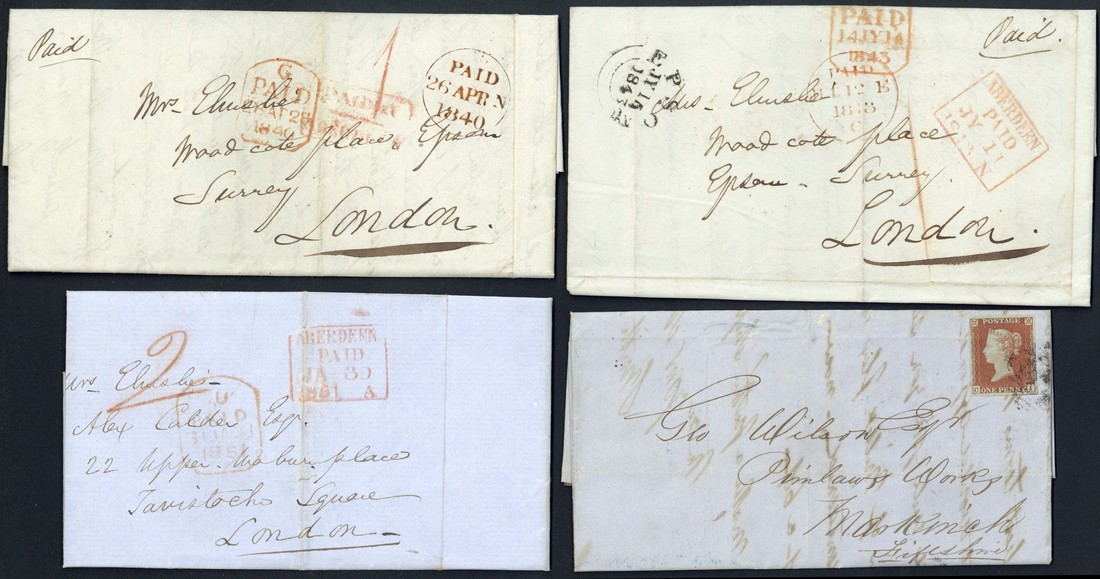 Paid
G
PAID
28
1840
1
PAID
26 APR N
1840
Mrs Elmslie
Wood cote place, Epsom
Surrey
London.
PAID
14JY14
1843
Paid.
EPSOM
JY 14
PAID
12 E
ABERDEEN
PAID
JY 11
N
Mrs Elmslie
Wood cote place
Epsom - Surrey.
London.
2
ABERDEEN
PAID
JA 30
1851 A
Mrs Elmslie
U
185
Alex Calder Esqr.
22 Upper place
Tavistock Square
London.
POSTAGE
ONE PENNY
Geo Wilson Esqr
Works
Markinch
Fifeshire